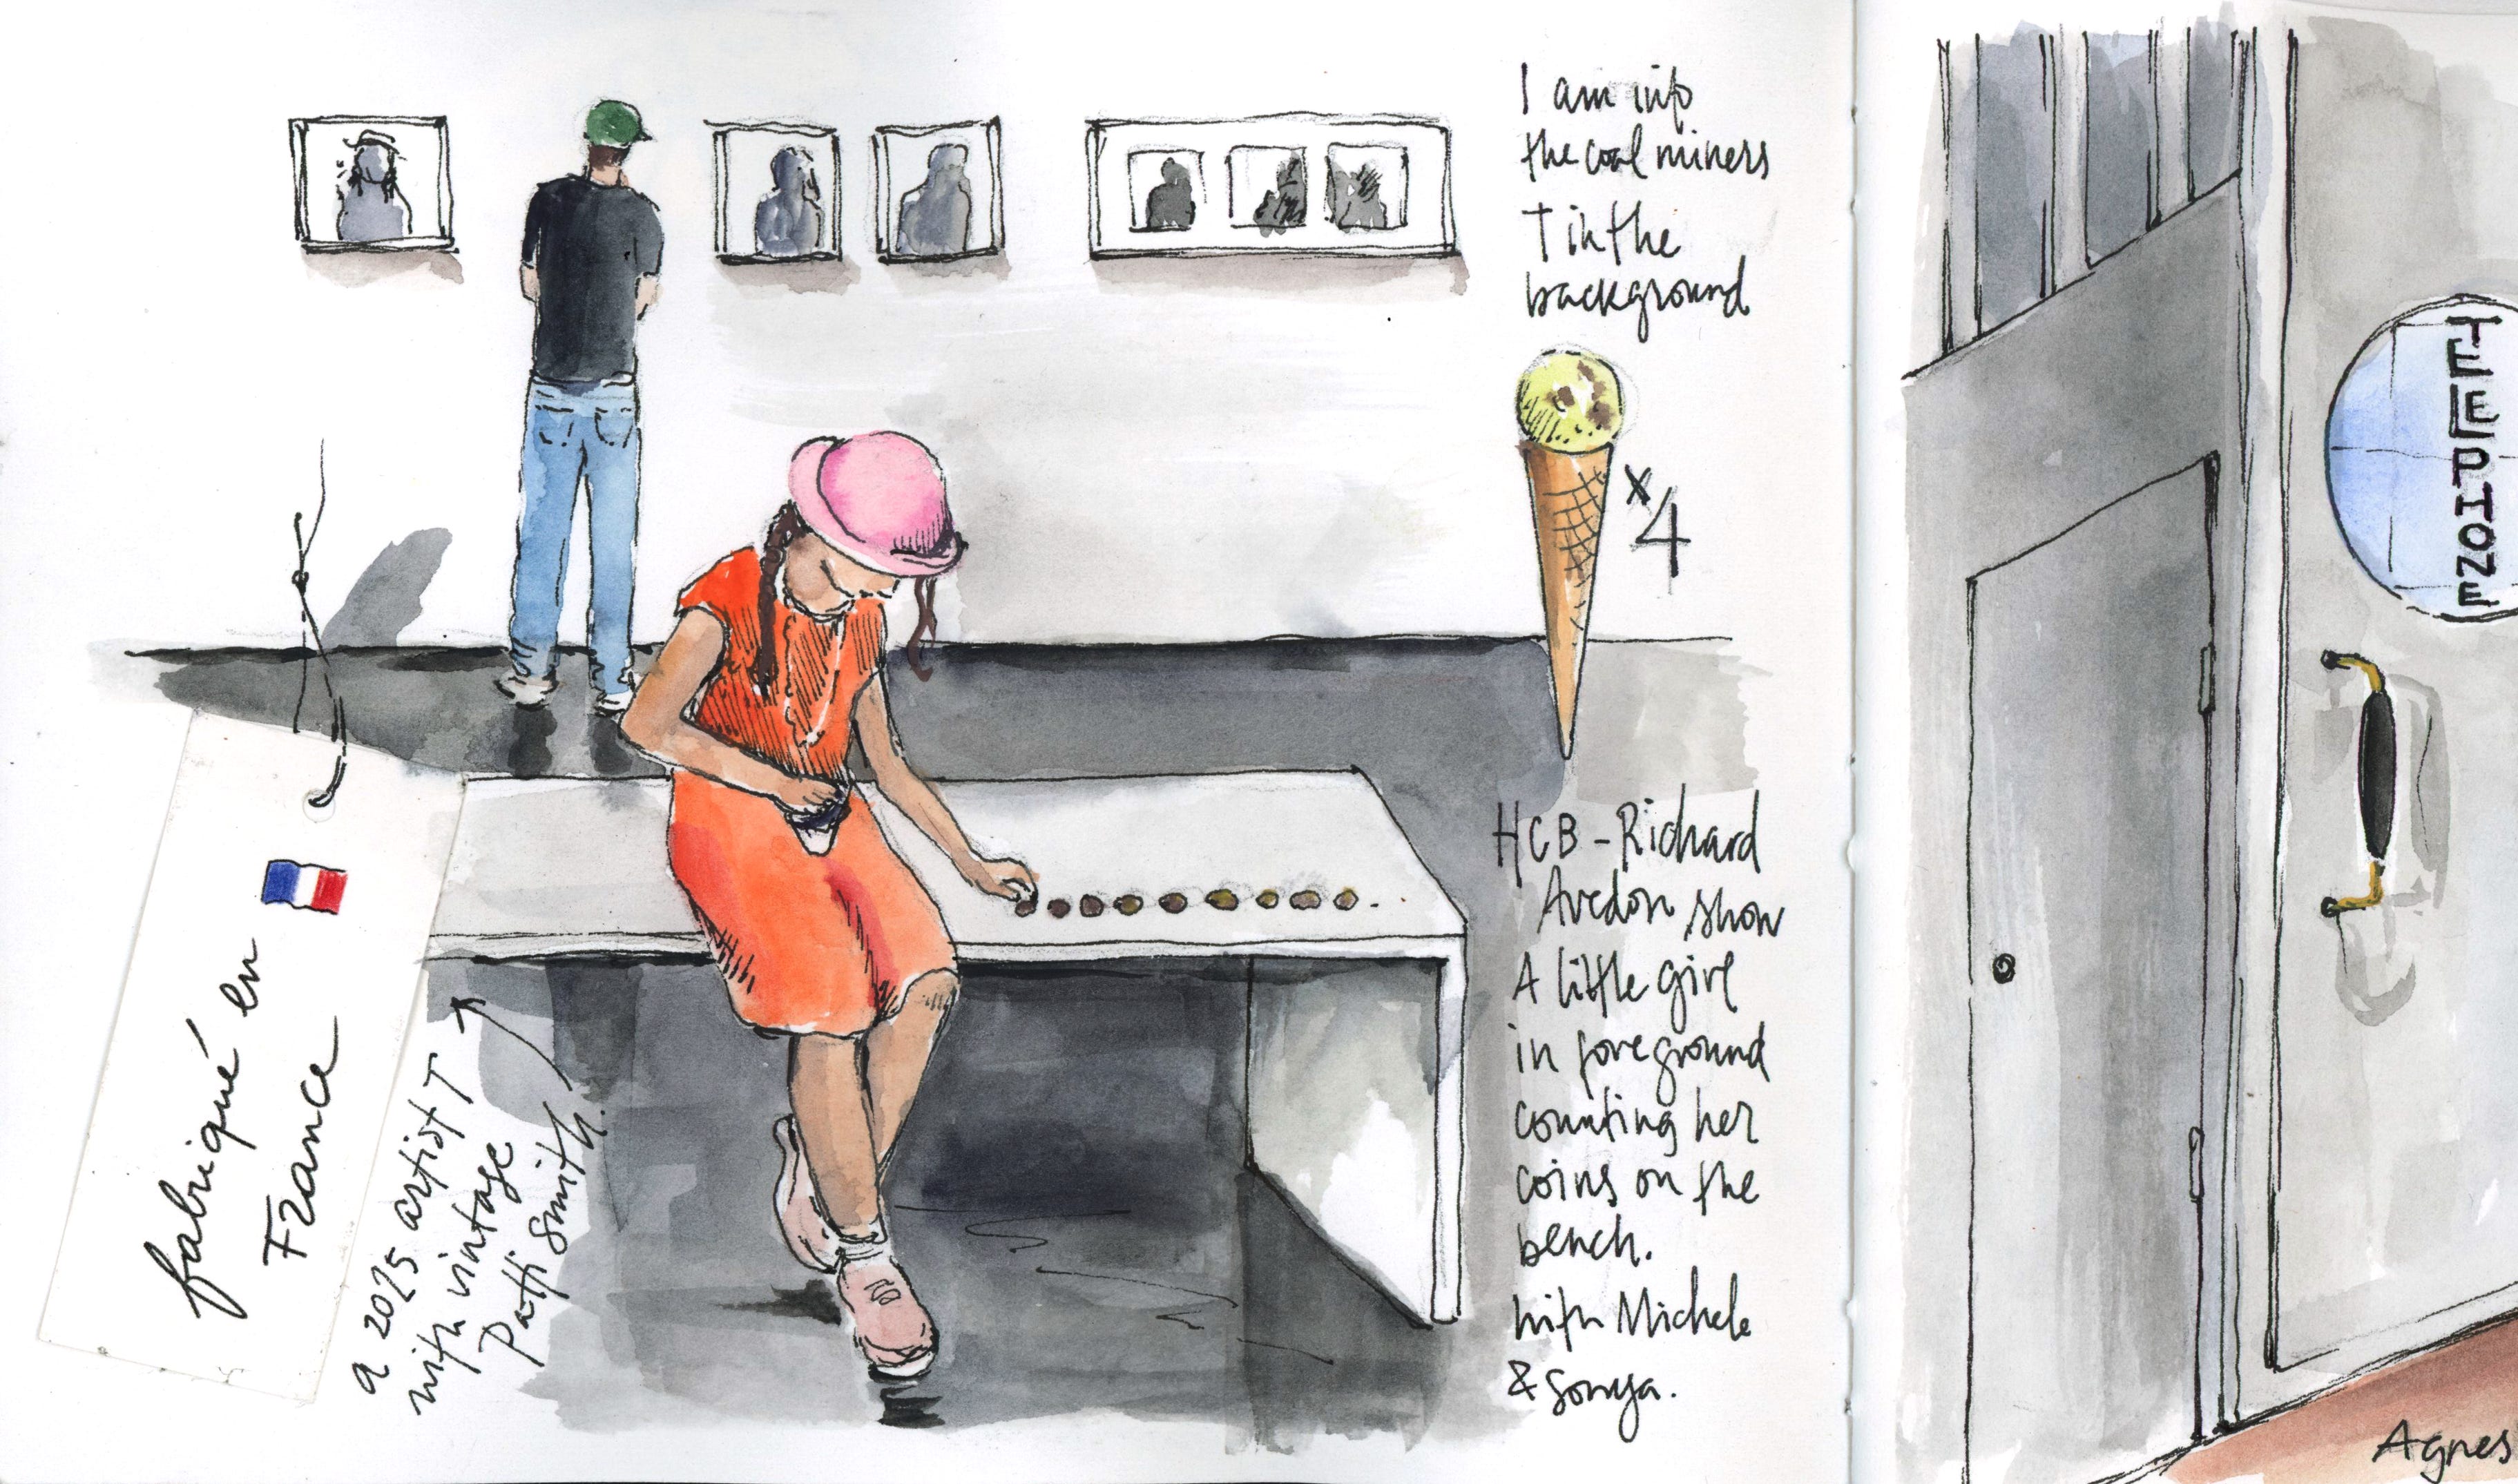 I am into
the coal miners
T in the
background
x4
HCB - Richard
Avedon show
A little girl
in foreground
counting her
coins on the
bench.
with Michele
& Sonya.
fabriqué en
France
a 2025 artist T
with vintage
Patti Smith.
TELEPHONE
Agnes